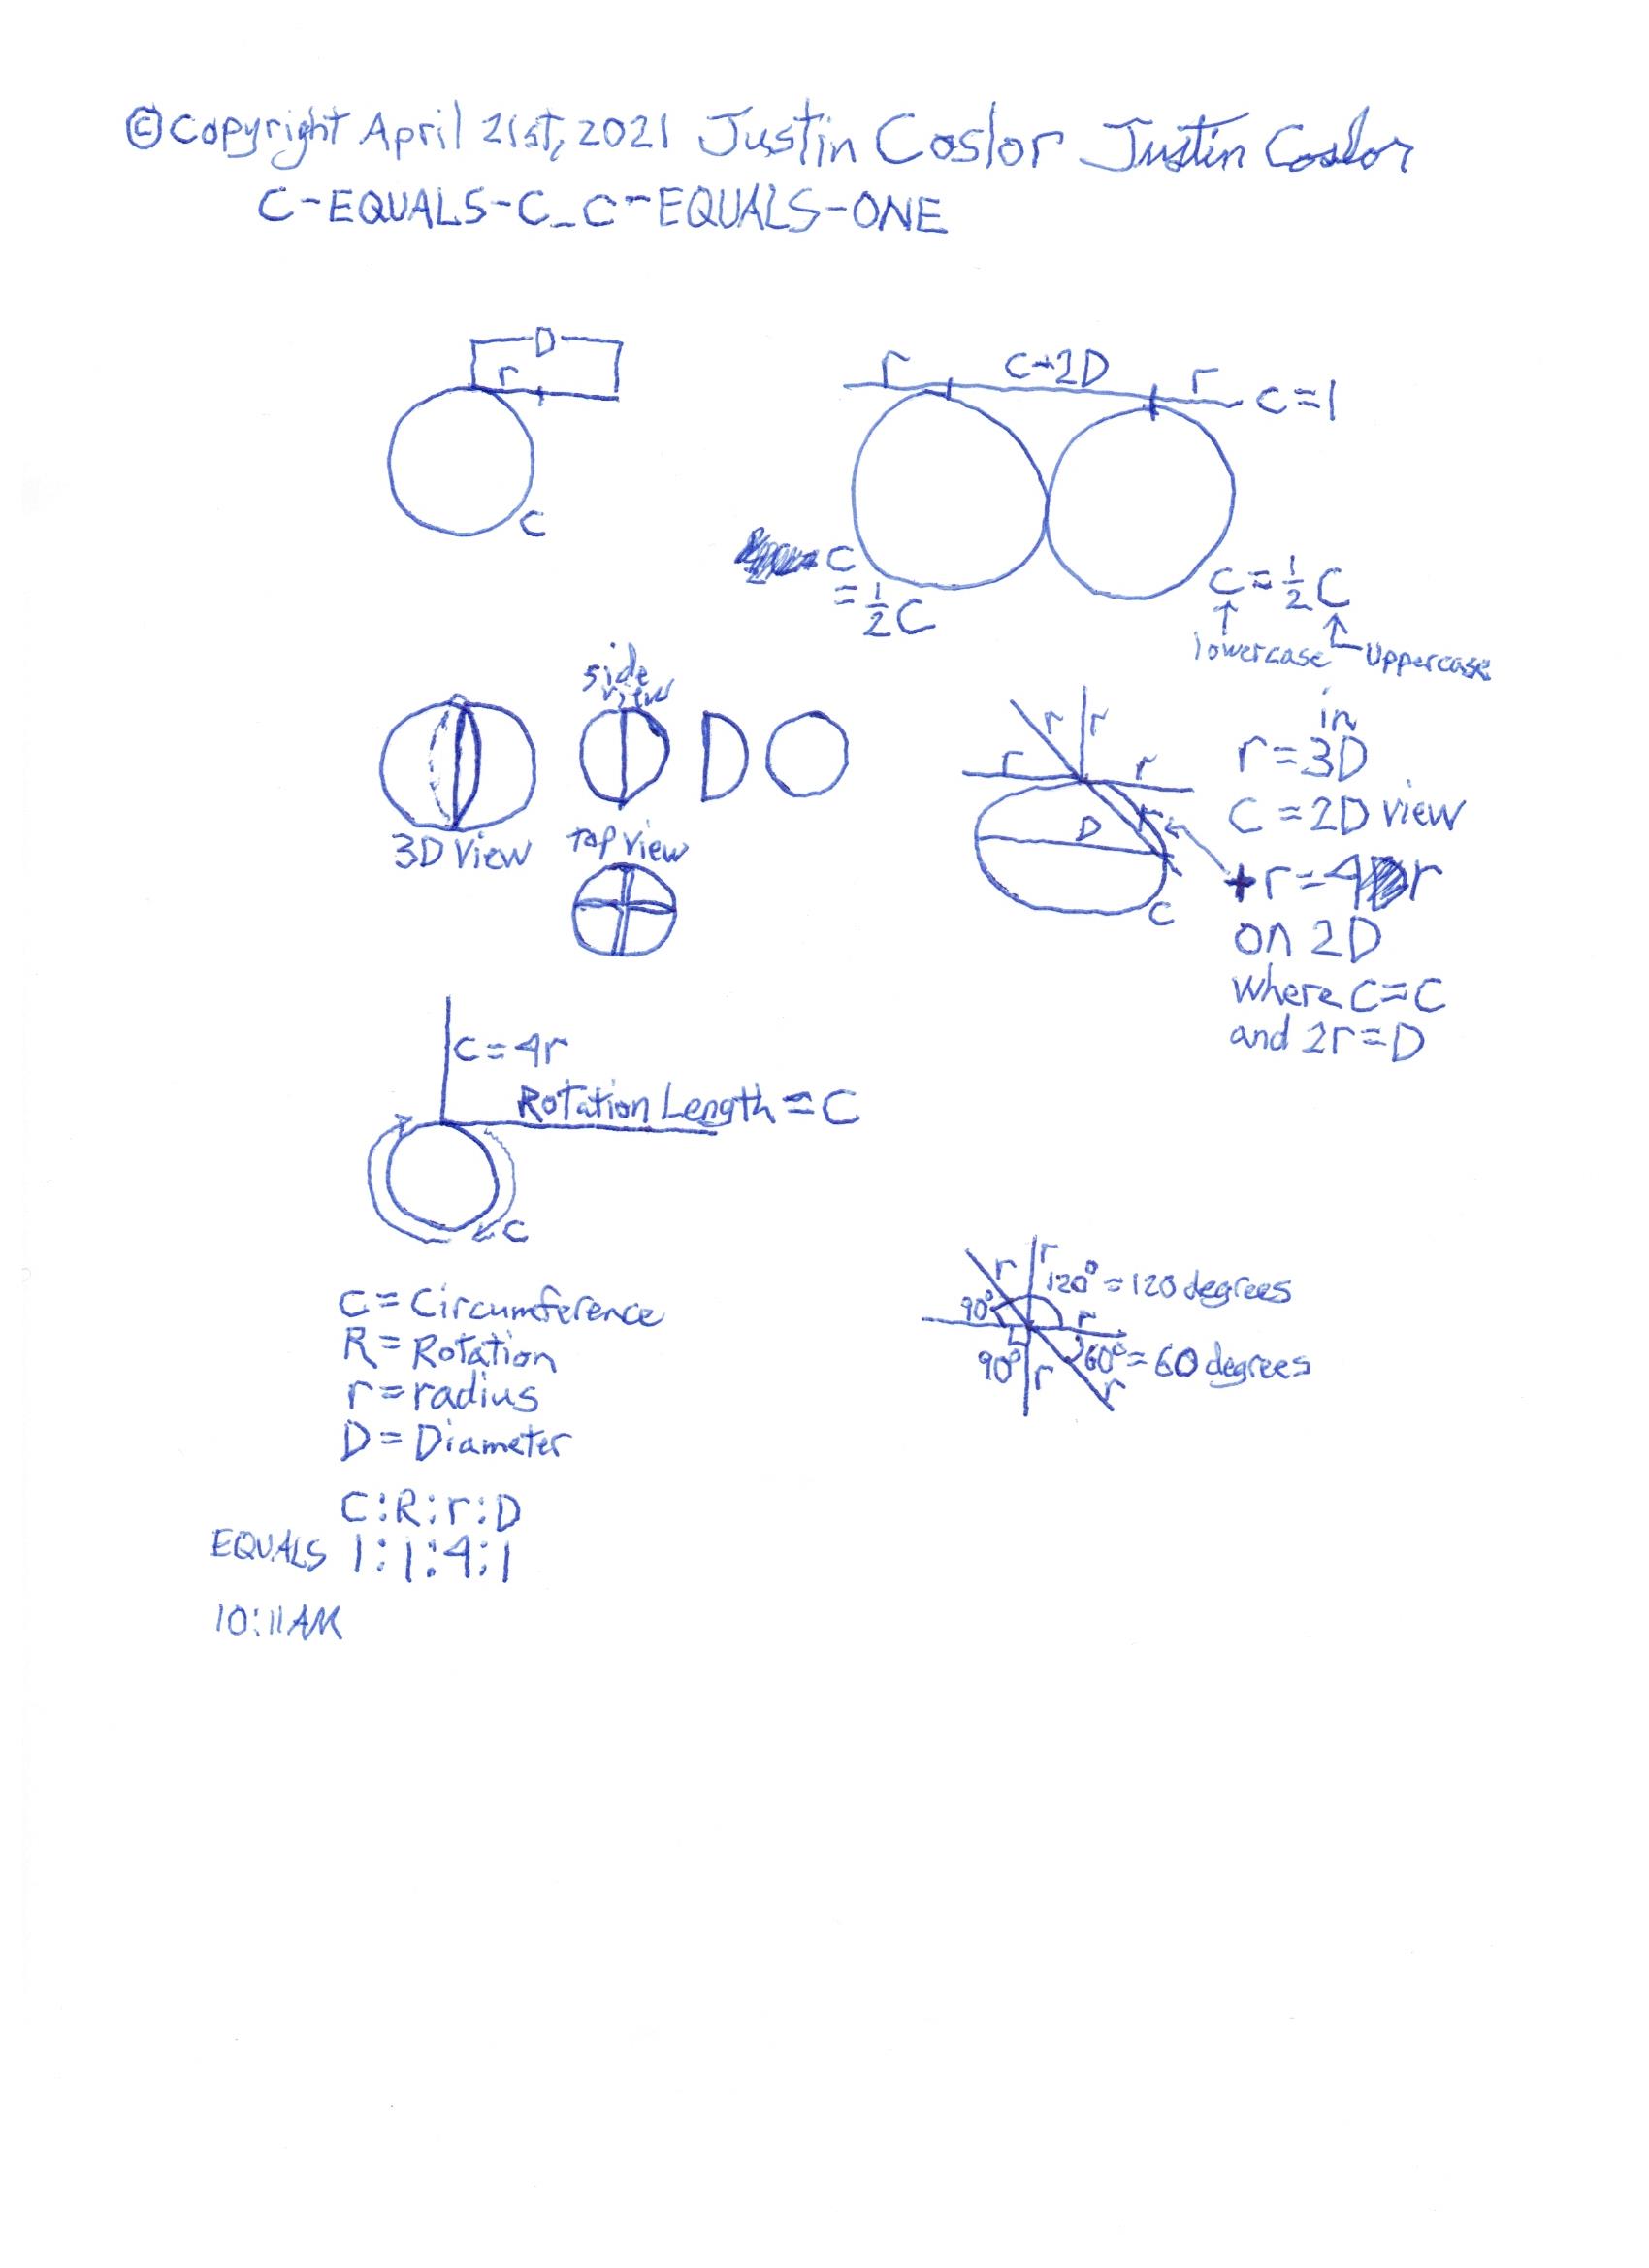 ©Copyright April 21st, 2021 Justin Coslor Justin Coslor
C-EQUALS-C_C-EQUALS-ONE
D
r
C
r C→2D r C=1
C
=½C
C=½C
lowercase Uppercase
3D View
side
view
top view
r r r r
D
r
C
in
r=3D
C=2D view
+r=4r
on 2D
where C=C
and 2r=D
C=4r
Rotation Length=C
C
C=Circumference
R=Rotation
r=radius
D=Diameter
C:R:r:D
EQUALS 1:1:4:1
10:11AM
r r 120°=120 degrees
90° r
90° r 60°=60 degrees
r